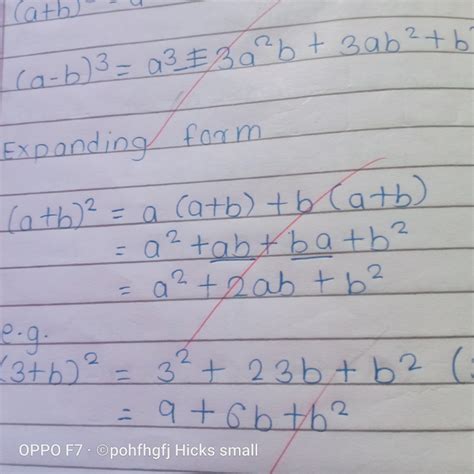 (a+b)
(a-b)³ = a³ ± 3a²b + 3ab² + b
Expanding form
(a+b)² = a (a+b) + b (a+b)
= a² + ab + ba + b²
= a² + 2ab + b²
e.g.
(3+b)² = 3² + 23b + b² (
= 9 + 6b + b²
OPPO F7 · ©pohfhgfj Hicks small